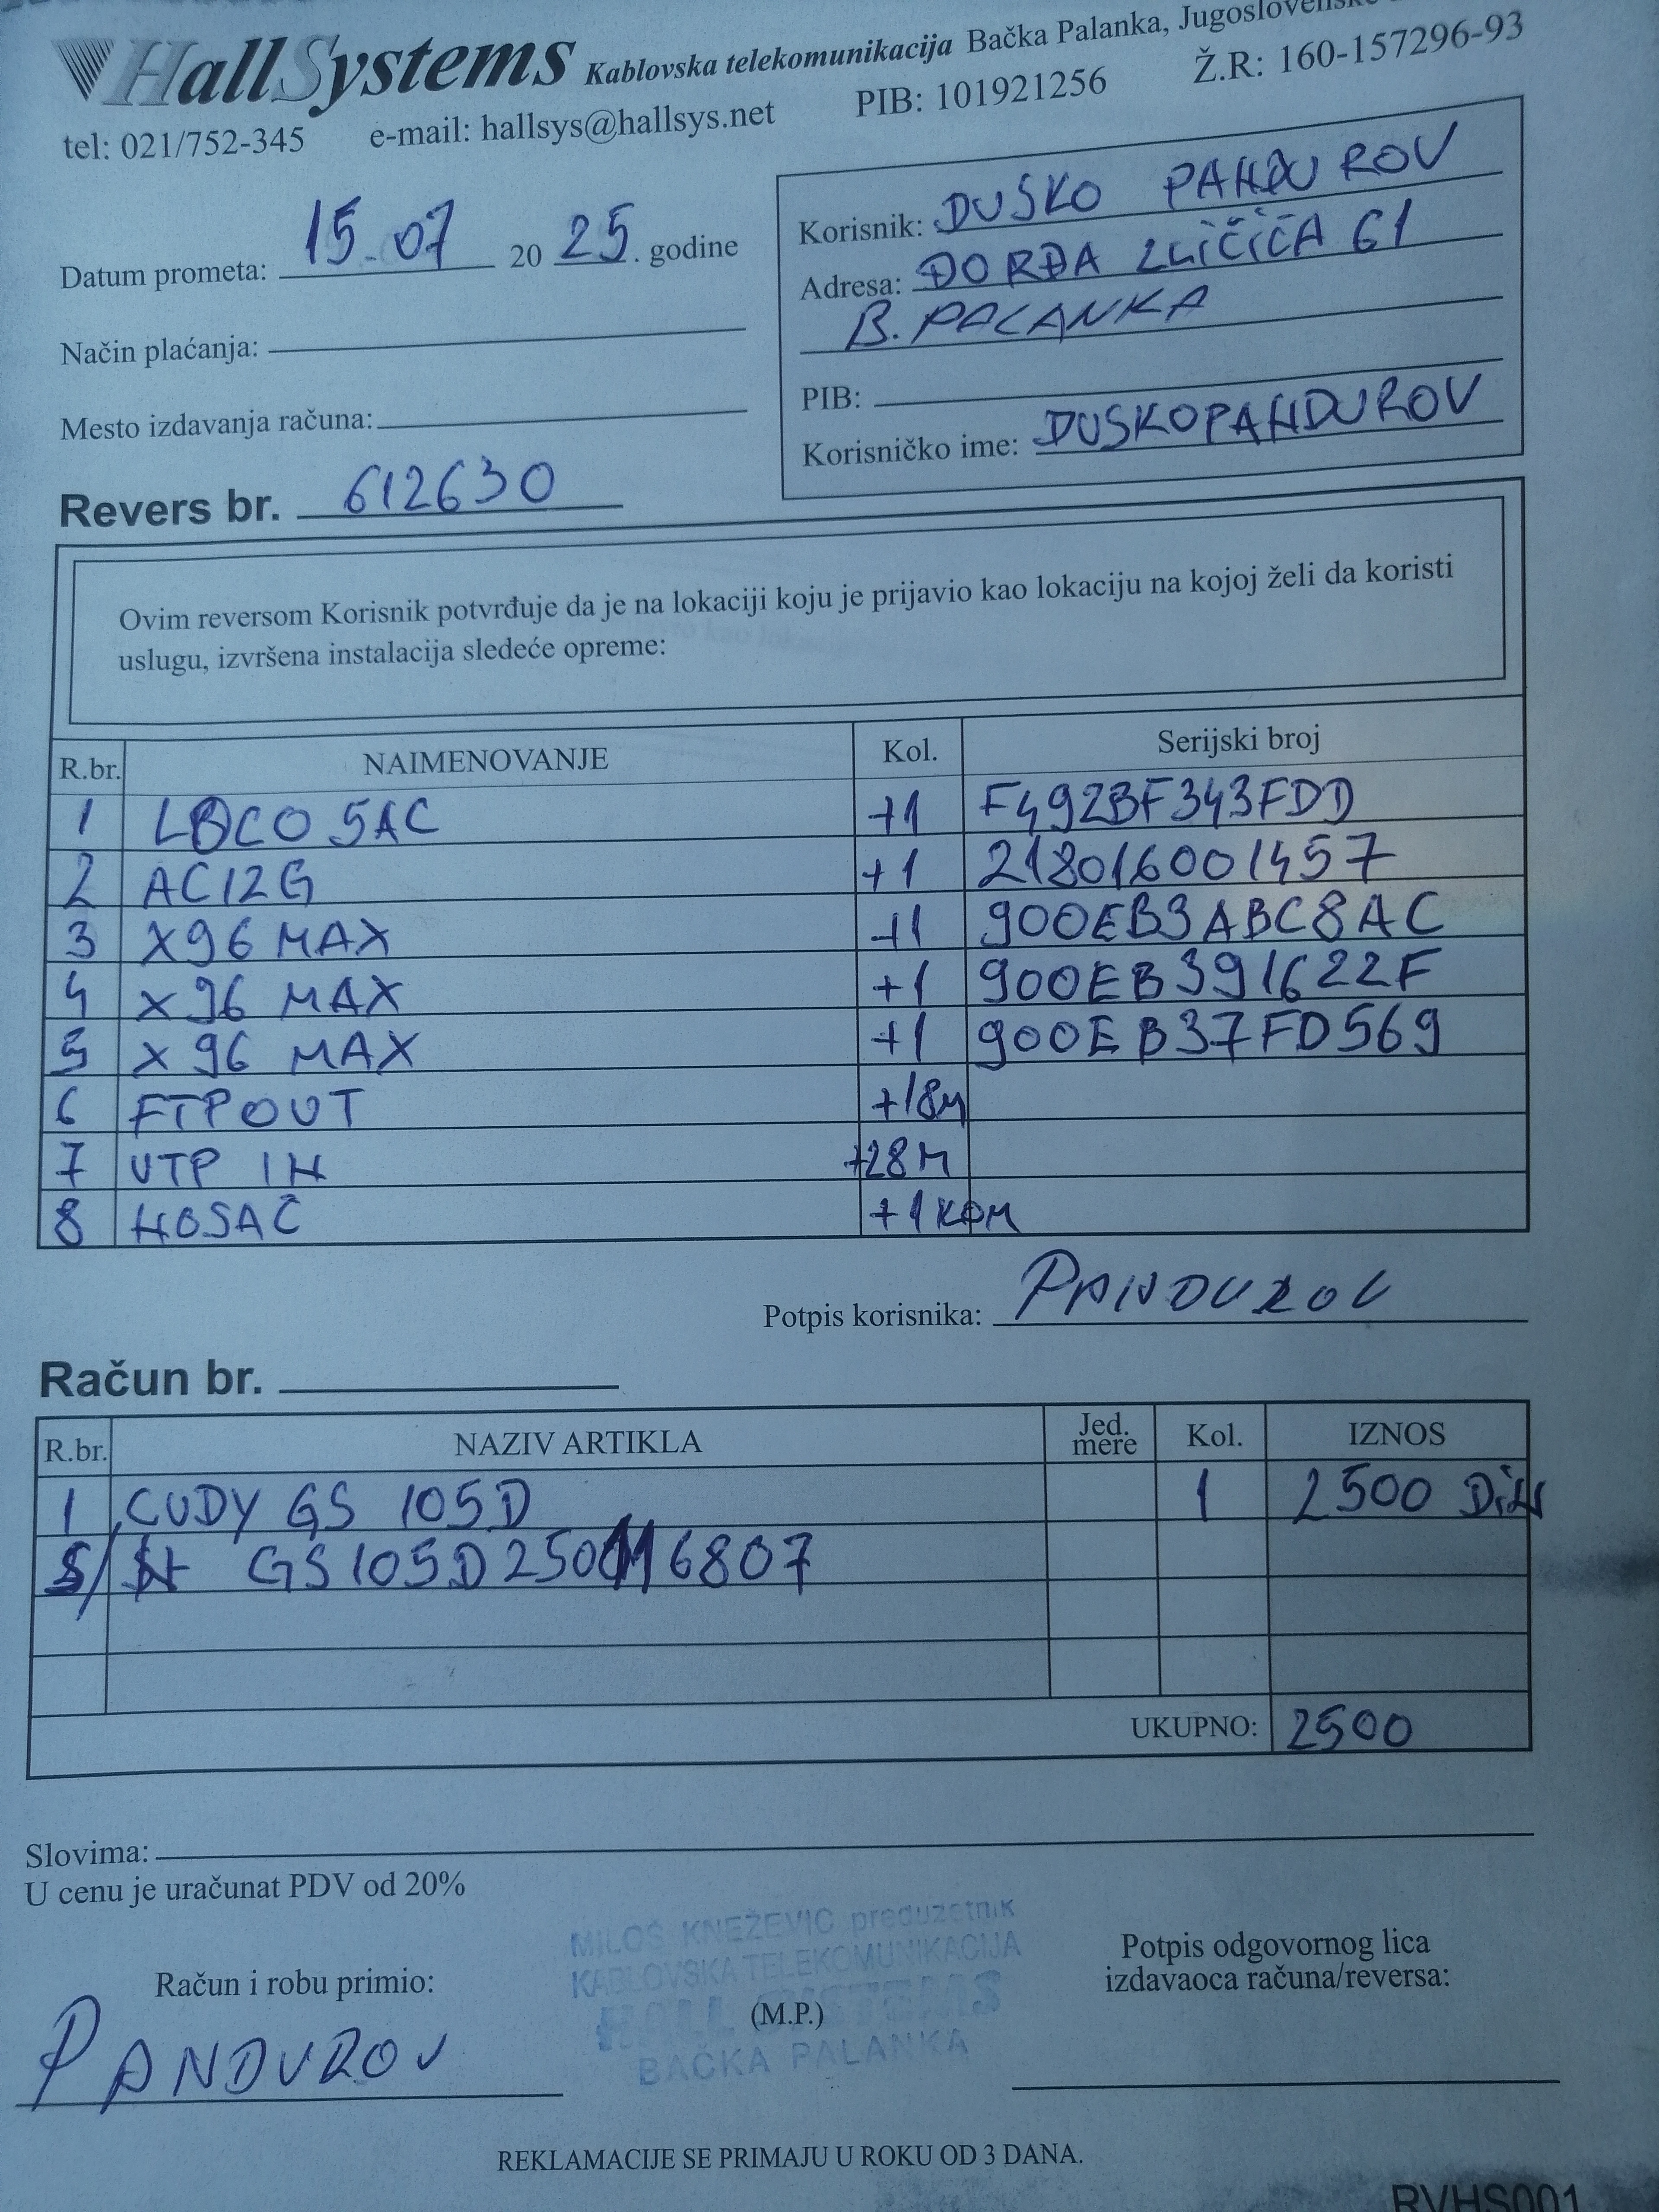 HallSystems Kablovska telekomunikacija Bačka Palanka, Jugoslovenske
tel: 021/752-345 e-mail: hallsys@hallsys.net PIB: 101921256 Ž.R: 160-157296-93
Datum prometa: 15.07 2025. godine
Način plaćanja:
Mesto izdavanja računa:
Revers br. 612630
Korisnik: DUŠKO PANDUROV
Adresa: ĐORĐA 61
B. PALANKA
PIB:
Korisničko ime: DUSKOPANDUROV
Ovim reversom Korisnik potvrđuje da je na lokaciji koju je prijavio kao lokaciju na kojoj želi da koristi
uslugu, izvršena instalacija sledeće opreme:
R.br. NAIMENOVANJE Kol. Serijski broj
1 LOCO 5AC +1 F492BF343FDD
2 AC12G +1 218016001457
3 X96 MAX +1 900EB3ABC8AC
4 X96 MAX +1 900EB391622F
5 X96 MAX +1 900EB37FD569
6 FTP OUT +18M
7 UTP IN +28M
8 NOSAČ +1 KOM
Potpis korisnika: PANDUROV
Račun br.
R.br. NAZIV ARTIKLA Jed. mere Kol. IZNOS
1 CUDY GS 105D 1 2500 DiN
S/N GS105D250116807
UKUPNO: 2500
Slovima:
U cenu je uračunat PDV od 20%
MILOŠ KNEŽEVIĆ preduzetnik
KABLOVSKA TELEKOMUNIKACIJA
HALL SYSTEMS
BAČKA PALANKA
Račun i robu primio:
PANDUROV
(M.P.)
Potpis odgovornog lica
izdavaoca računa/reversa:
REKLAMACIJE SE PRIMAJU U ROKU OD 3 DANA.
RVHS001